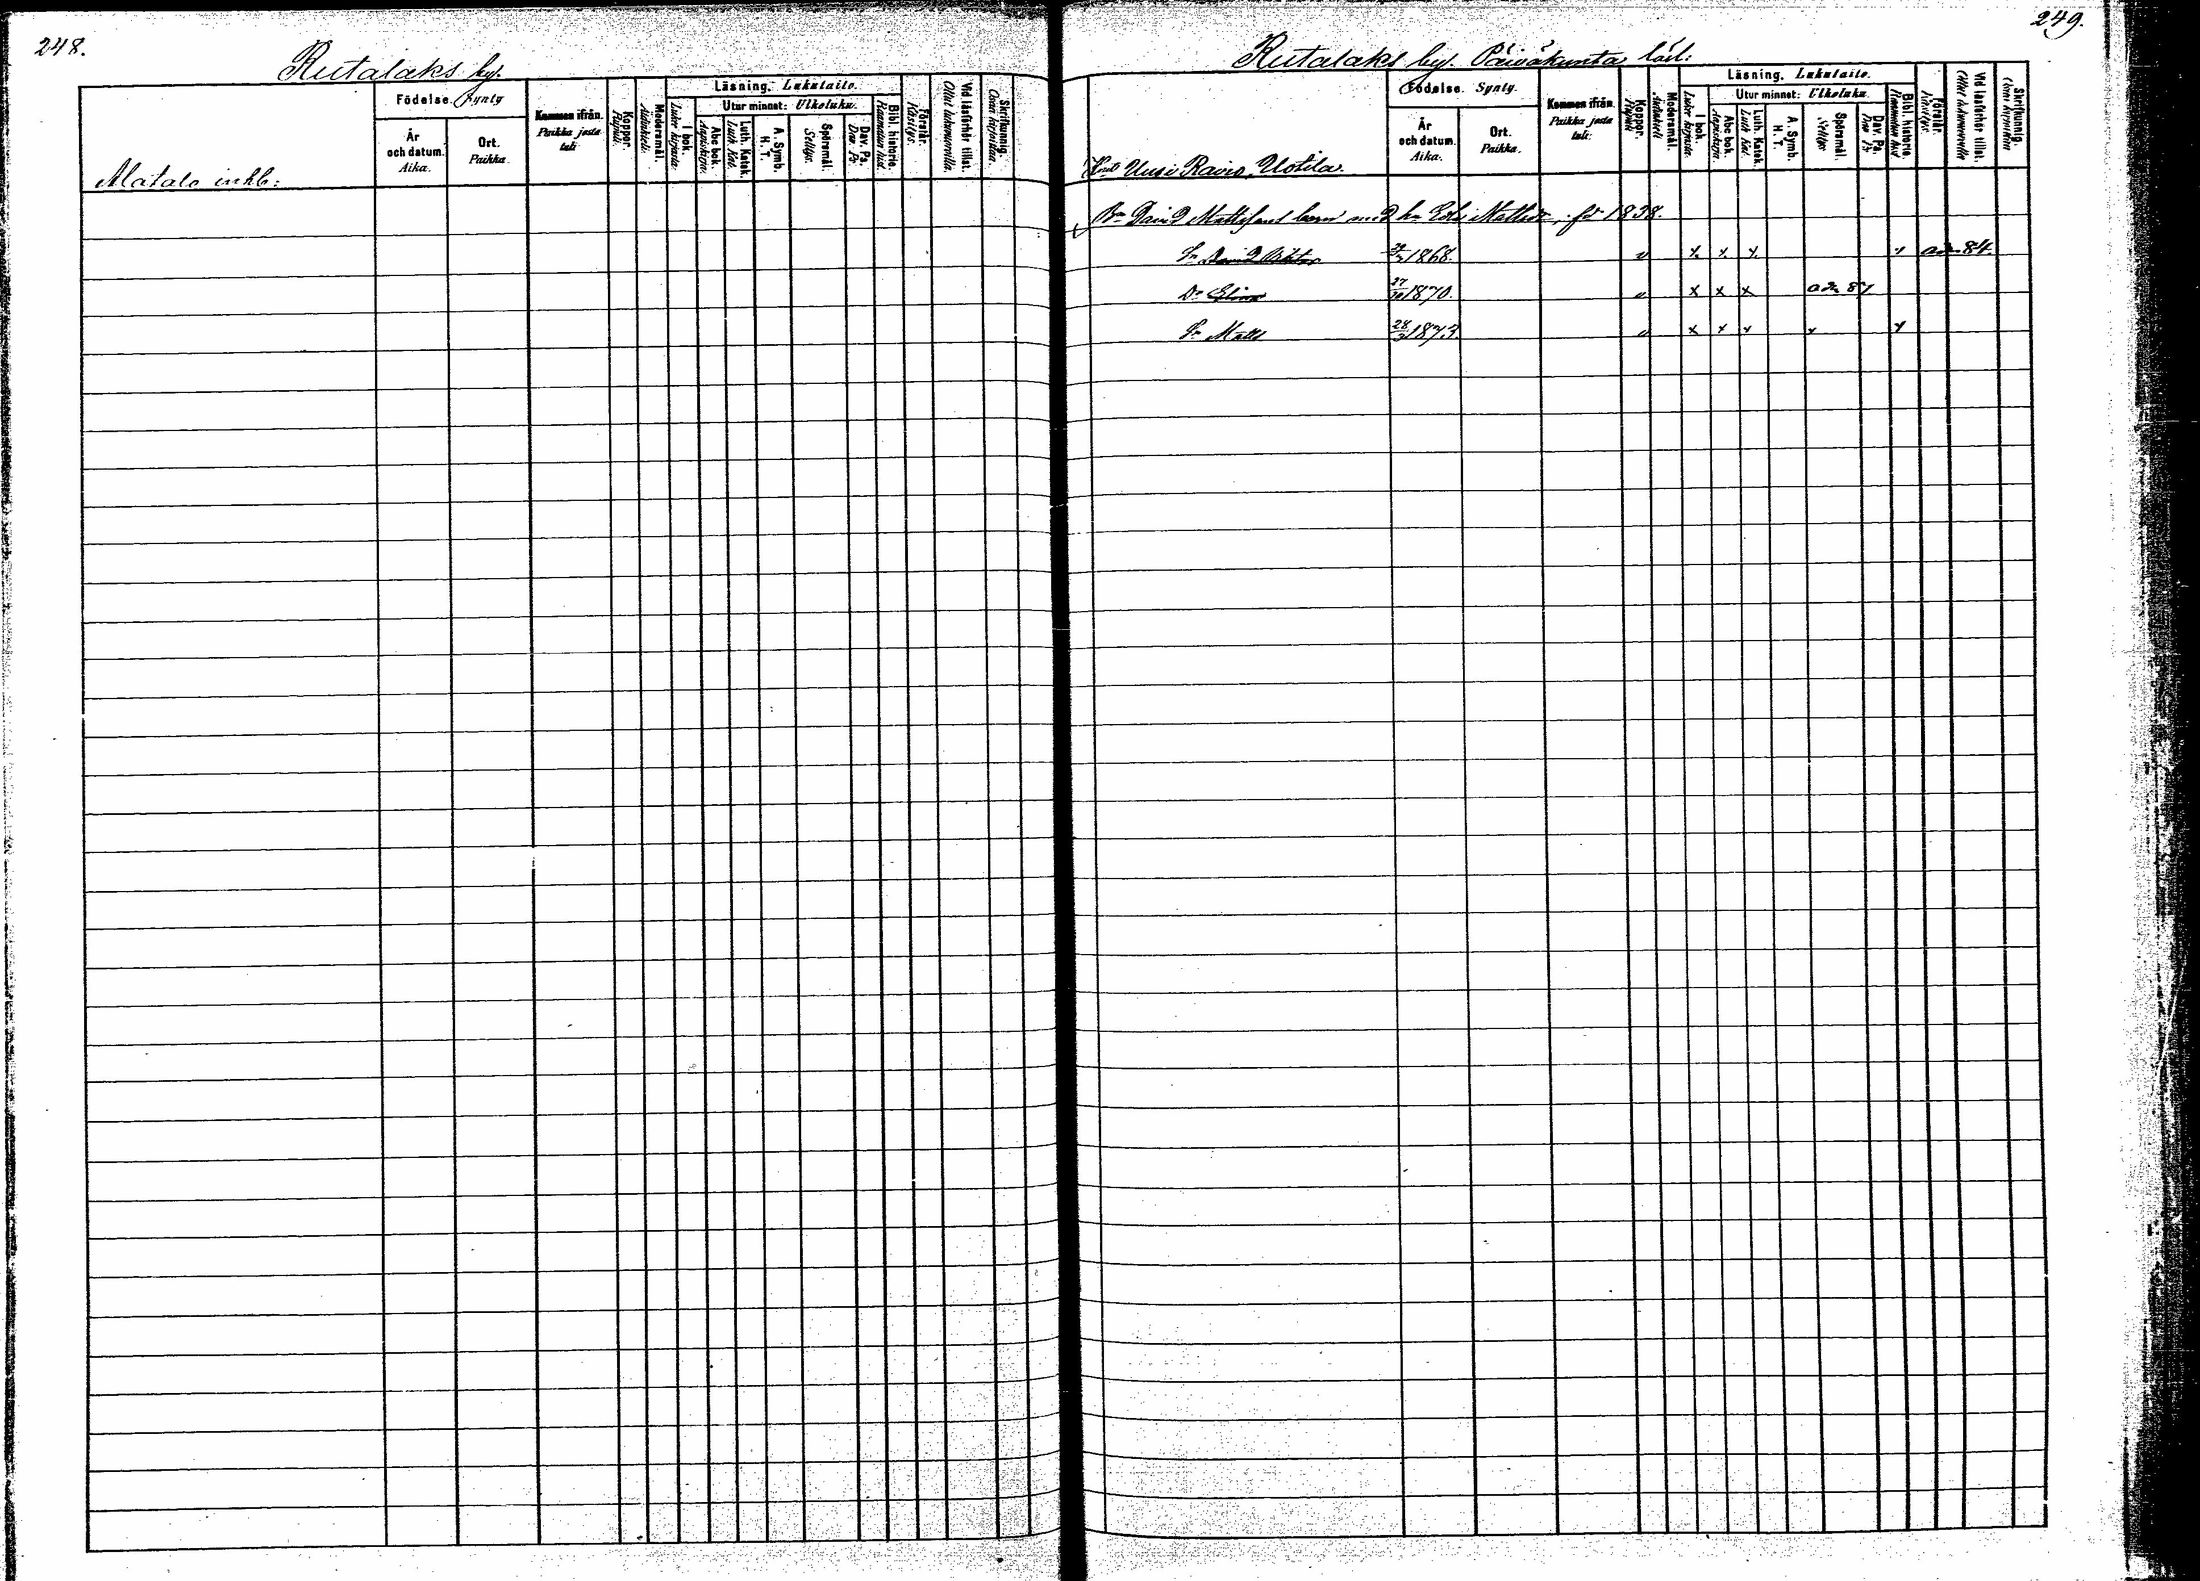 248.
Rutalaks by.
Födelse. Synty
År och datum. Aika.
Ort. Paikka.
Kommen ifrån. Paikka josta tuli
Koppor. Rupuli.
Modersmål. Äitinkieli.
Läsning. Lukutaito.
I bok. Lukee kirjasta.
Utur minnet: Ulkoluku.
Abc bok. Aapiskirja.
Luth. Katek. Luth. Kat.
A. Symb. H. T.
Spörsmål. Selitys.
Dav. Ps. Dav. Ps.
Bibl. historie. Raamatun hist.
Förstår. Käsitys.
Vid läsförhör tillst. Ollut lukuvuoroilla.
Skrifkunnig. Osaa kirjoittaa.
Matalo inhb:
249.
Rutalaks by. Päiväkunta läsl:
Födelse. Synty.
År och datum. Aika.
Ort. Paikka.
Kommen ifrån. Paikka josta tuli:
Koppor. Rupuli
Modersmål. Äitinkieli
Läsning. Lukutaito.
I bok. Lukee kirjasta.
Utur minnet: Ulkoluku.
Abc bok. Aapiskirja.
Luth. Katek. Luth. Kat.
A. Symb. H. T.
Spörsmål. Selitys.
Dav. Ps. Dav. Ps.
Bibl. historie. Raamatun hist.
Förstår. Käsitys.
Vid läsförhör tillst. Ollut lukuvuoroilla
Skrifkunnig. Osaa kirjoittaa
Uusi Ravio, Uotila.
David Mattss barn med h. Matlsdr, fd 1838.
Sn David Viktor 1868. " x x x x adm 84.
Dr Elina 27/10 1870. " x x x adm 87
Sn Matts 28/3 1873. " x x x x x